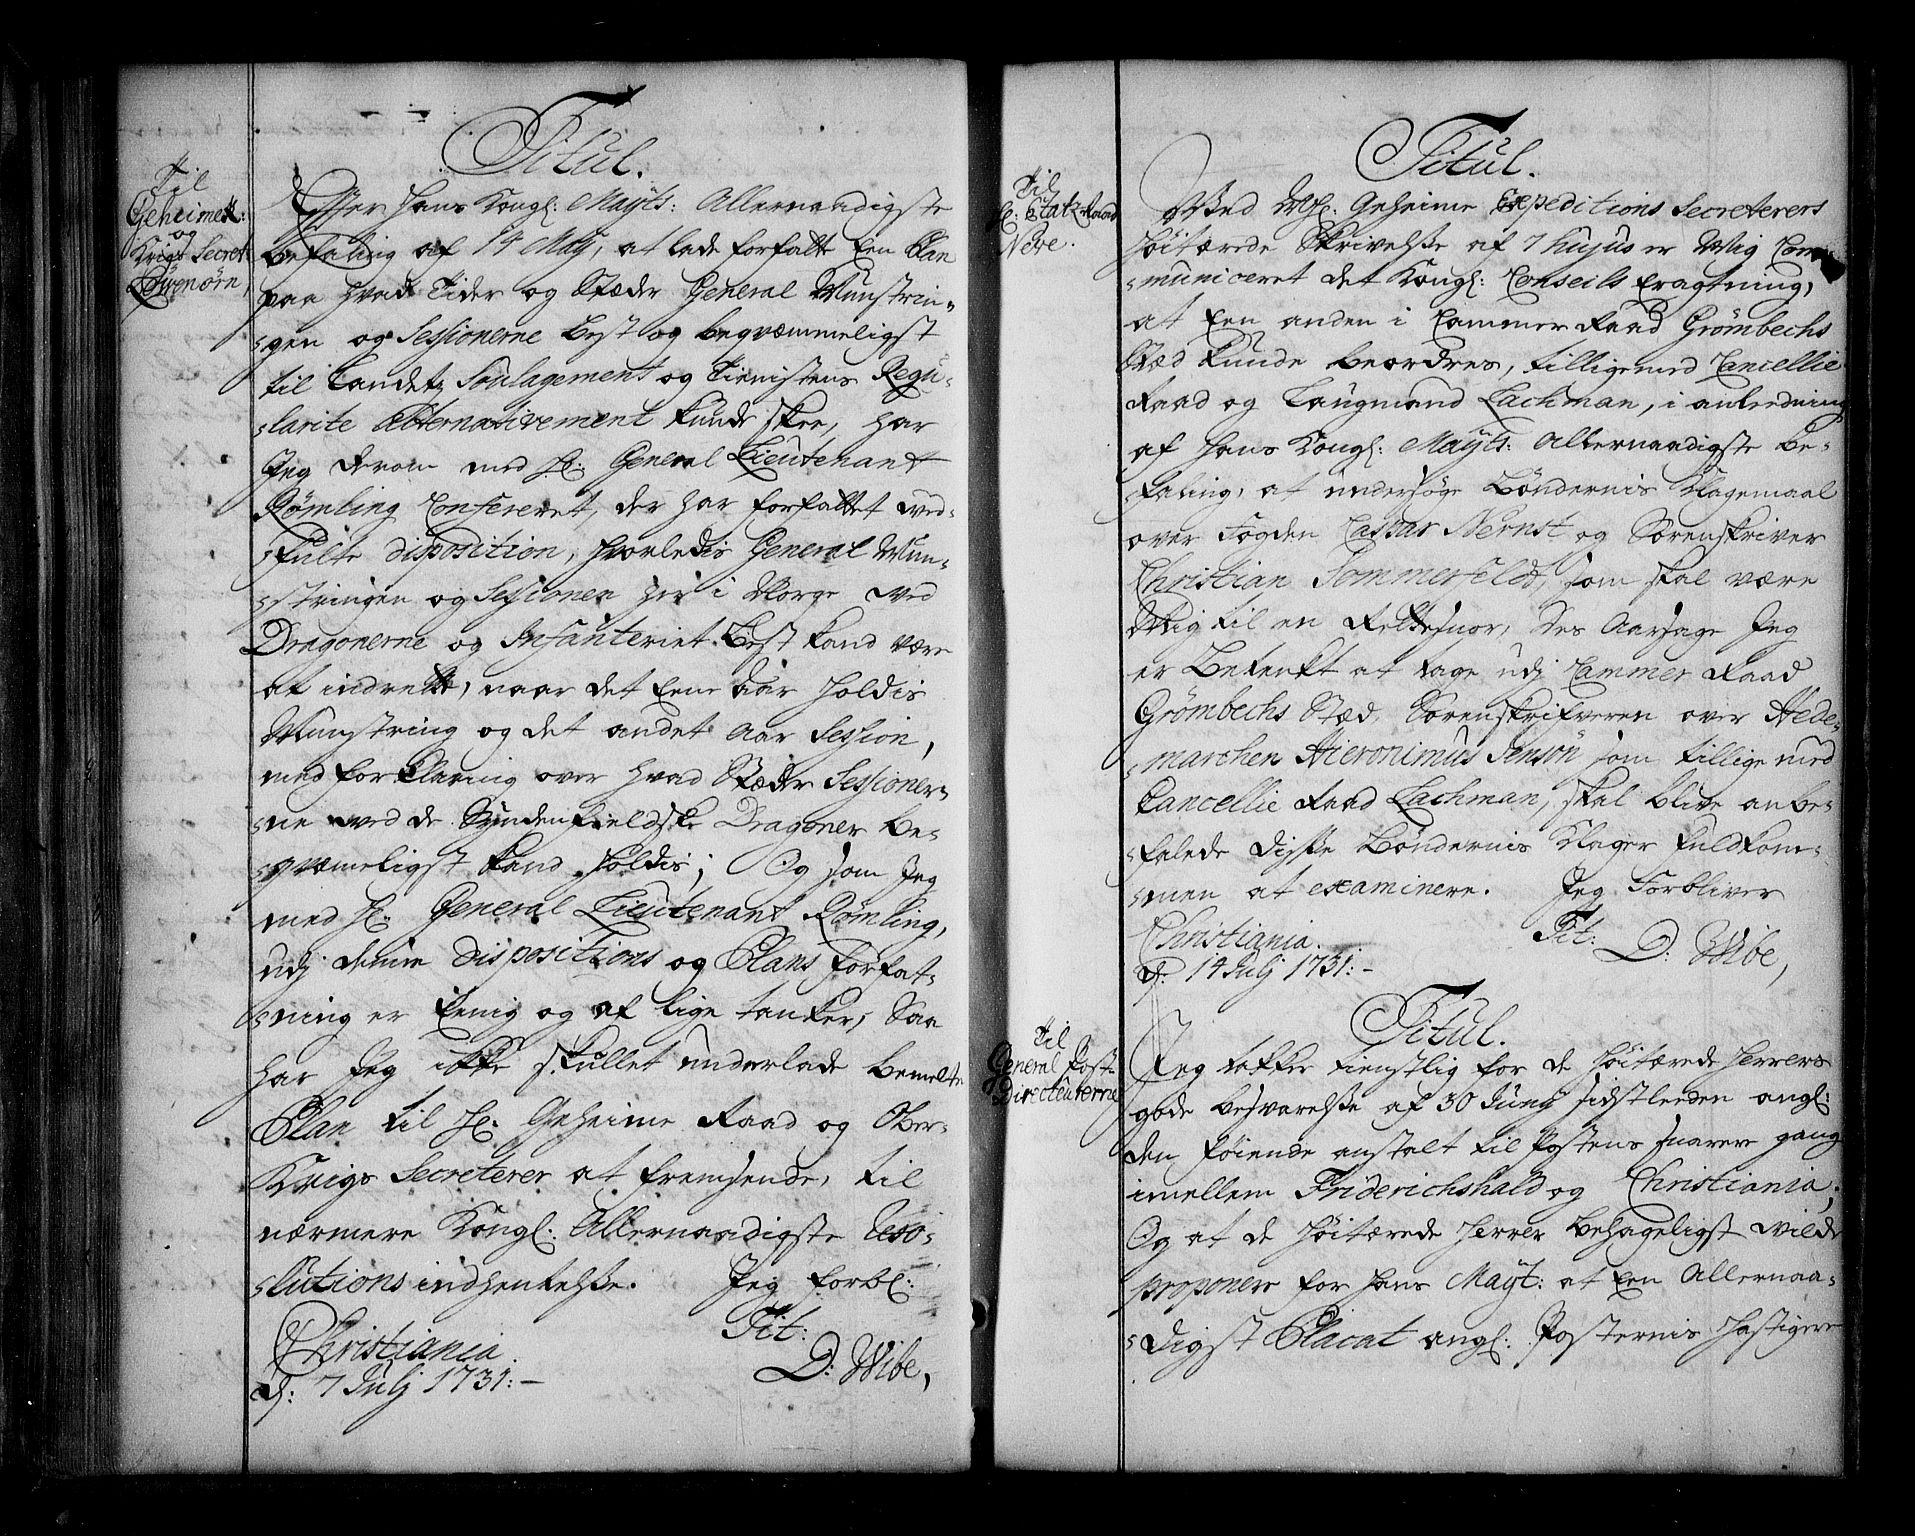 Til
Geheime R:
og
Krigs Secret:
Løvenørn,
Titul.
Efter Hans Kongl: Mayts: Allernaadigste
befaling af 14 Maij, at lade forfatte Een Plan
paa hvad Tider og Stæder General Munstrin-
gen og Sessionerne best og beqvæmmeligst
til Landets Soulagement og Tienistens Regu-
larite Alternativement kunde skee, har
Jeg derom med Hr: General Lieutenant
Rømling Confereret, der har forfattet ved-
fulte disposition, hvorledis General Mun-
stringen og Sessionen her i Norge ved
Dragonerne og Infanteriet best kand være
at indrette, naar det Eene Aar holdis
Munstring og det andet Aar Session,
med forklaring over hvad Stæder Sessioner-
ne ved de Syndenfieldske Dragoner be-
qvæmeligst kand holdis; Og som Jeg
med Hr: General Lieutenant Rømling,
udj denne Dispositions og Plans forfat-
ning er Eenig og af lige tanker, Saa
har Jeg ikke skullet underlade bemelte
Plan til Hr: Geheime Raad og Ober-
Krigs Secreterer at fremsende, til
nærmere Kongl: Allernaadigste Reso-
lutions indhentelsse. Jeg forbl:
Tit:
Christiania
d: 7 Julj 1731:-
D: Wibe,
Til
Hr: Etatz Raad
Neve.
Titul.
Med Mh: Geheime Expeditions Secreterers
Høitærede Skrivelsse af 7 hujus er Mig Com-
municeret det Kongl: Conseils Eragtning,
at Een anden i Cammer Raad Grømbechs
Stæd kunde beordres, tillige med Cancellie
Raad og Laugmand Lachman, i anledning
af Hans Kongl: Mayts: Allernaadigste be-
faling, at undersøge Bøndernis Klagemaal
over Fogden Caspar Nernst og Sorenskriver
Christian Sommerfeldt, som skal være
Mig til en Rettesnor, Des Aarsage Jeg
er betenkt at tage udj Cammer Raad
Grømbechs Stæd, Sorenskrifveren over Hede-
marchen Hieronimus Jensøn som tillige med
Cancellie Raad Lachman, skal blive anbe-
falede disse Bøndernis Klager fuldkom-
men at examinere. Jeg Forbliver
Tit:
Christiania.
d: 14 Julj 1731:-
D: Wibe,
Til
General Post
Directeurerne
Titul.
Jeg takker tienstlig for de Høitærede Herrers
gode besvarelsse af 30 Junij sidstleeden angl:
den føiende anstalt til Postens snarere gang
imellem Friderichshald og Christiania;
Og at de Høitærede Herrer behageligst vilde
proponere for Hans Mayt: at Een Allernaa-
digst Placat angl: Posternis Hastigere